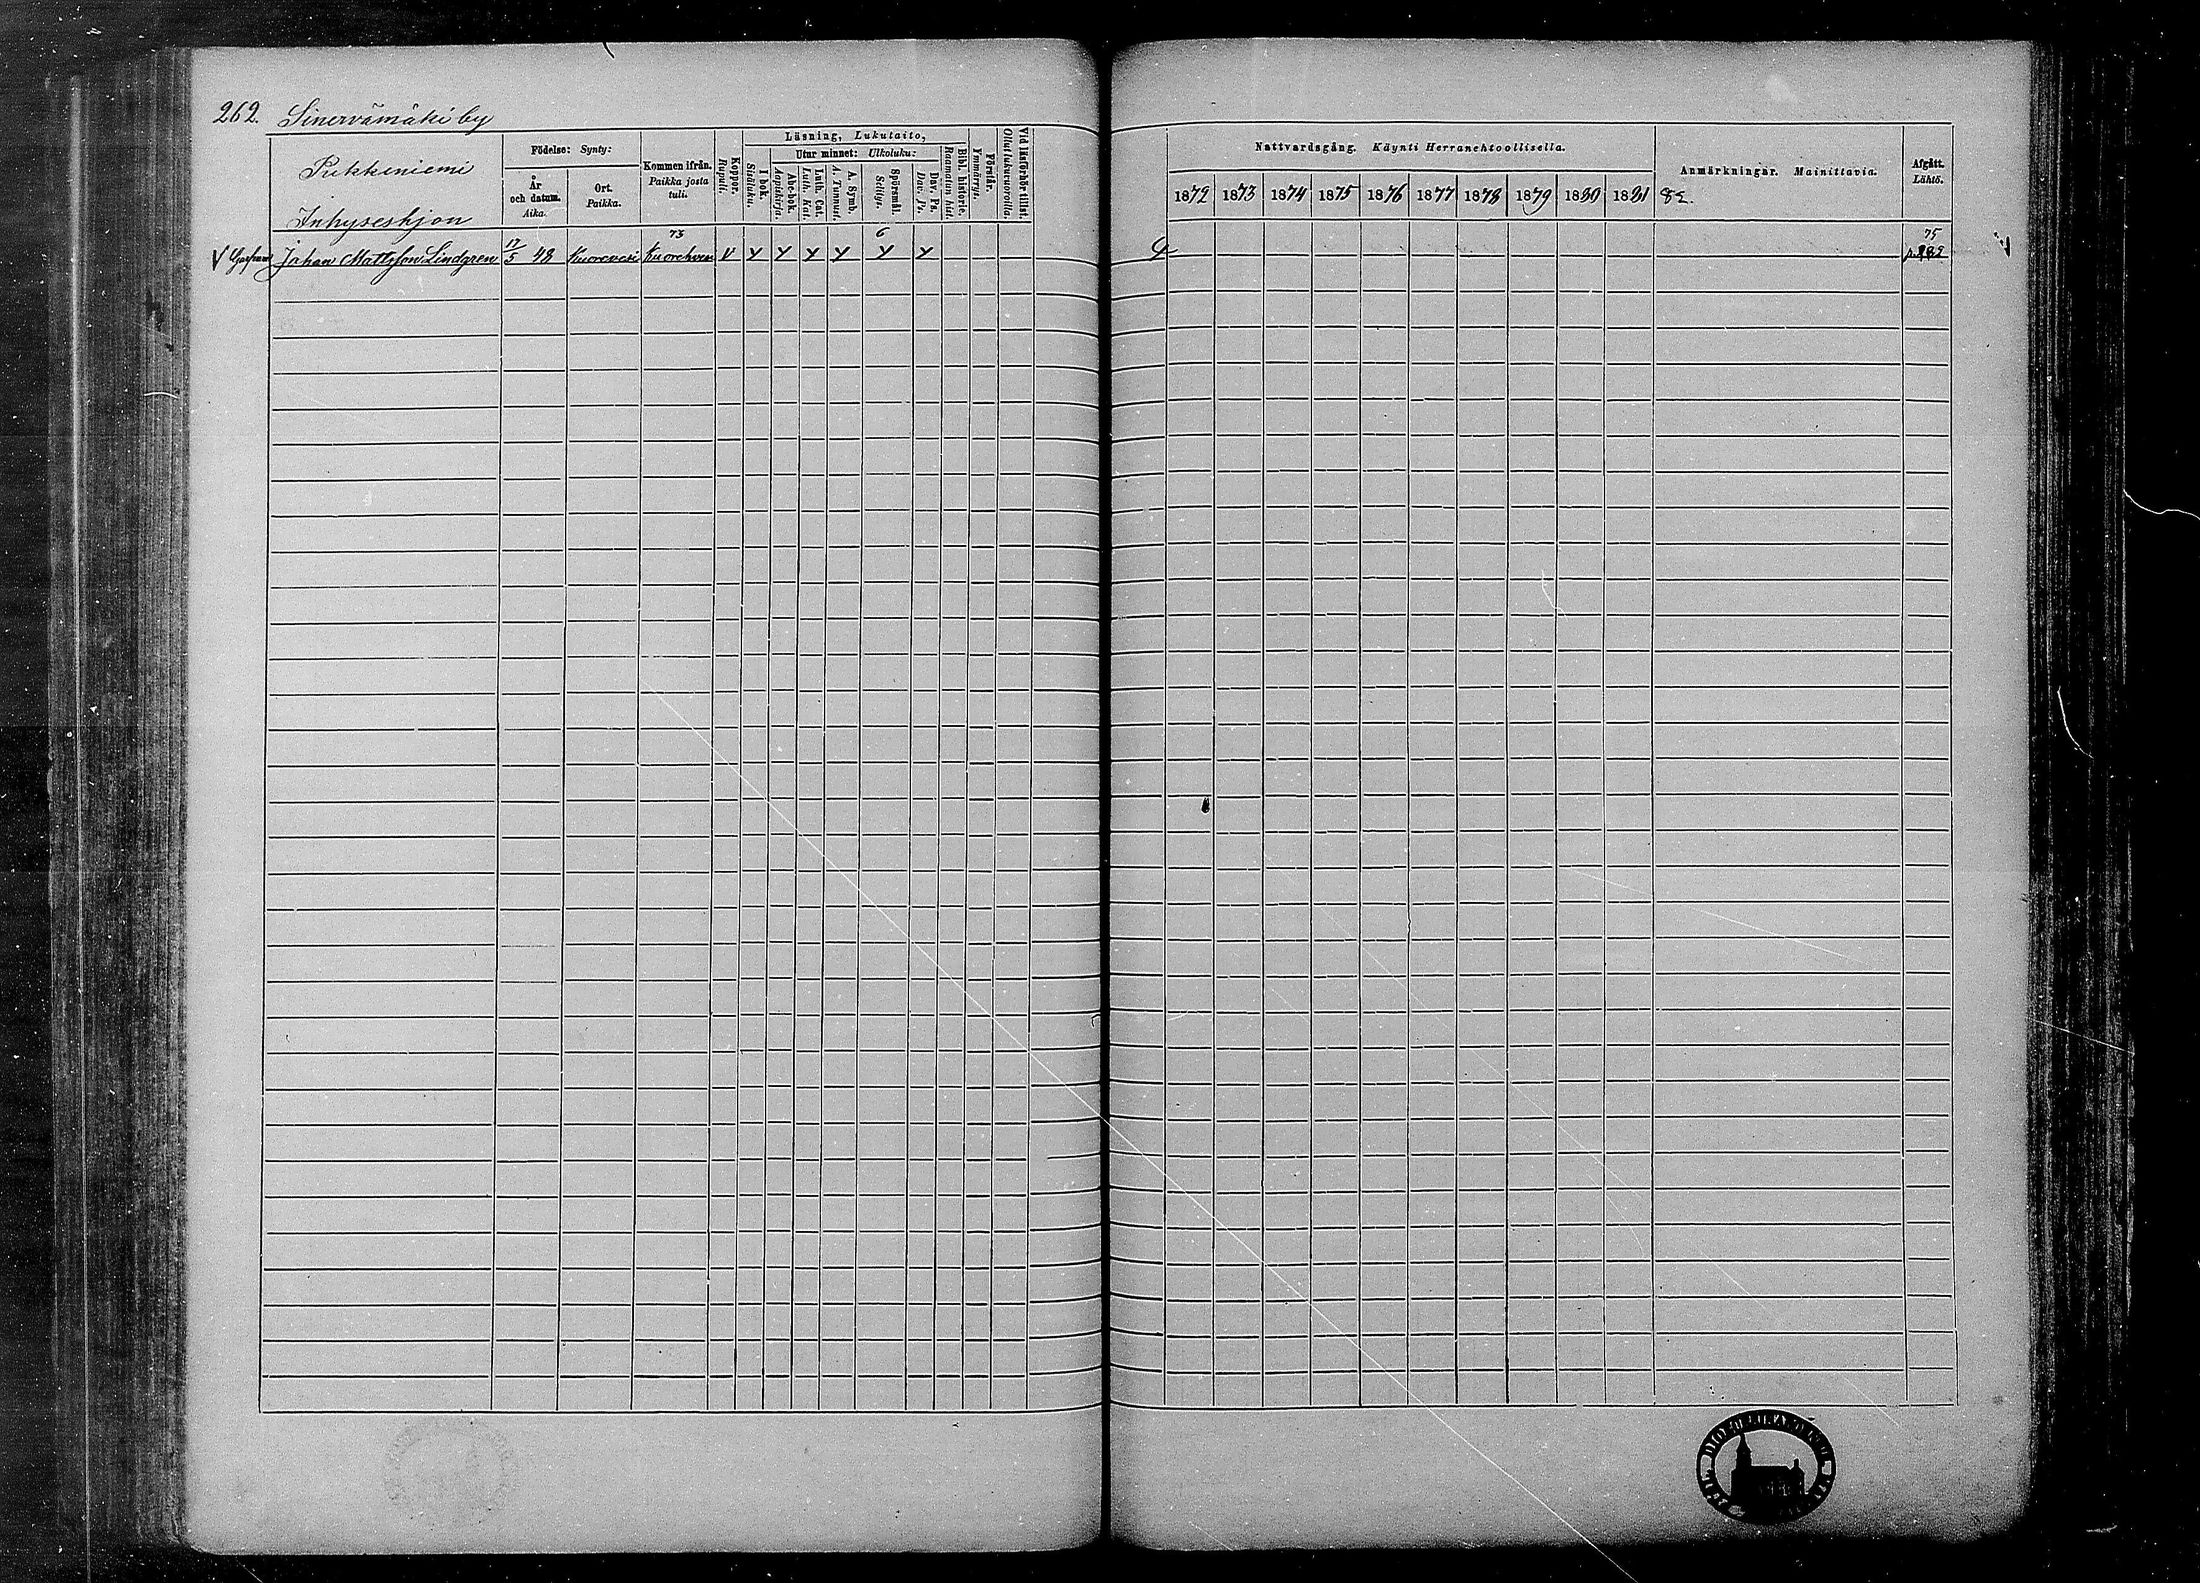 262. Sinervämäki by
Pukkeniemi
Inhyseshjon
Födelse: Synty:
År och datum. Aika.
Ort. Paikka.
Kommen ifrån. Paikka josta tuli.
Koppor. Rupuli.
Läsning, Lukutaito,
I bok. Sisäluku.
Utur minnet: Ulkoluku:
Abc-bok. Aapiskirja.
Luth. Cat. Luth. Kat.
A. Symb. A. Tunnust.
Spörsmål. Selitys.
Dav. Ps. Dav. Ps.
Bibl. historie. Raamatun hist.
Förstår. Ymmärrys.
Vid läsförhör tillst. Ollut lukuvuoroilla.
Nattvardsgång. Käynti Herranehtoollisella.
1872 1873 1874 1875 1876 1877 1878 1879 1880 1881 82.
Anmärkningar. Mainittavia.
Afgått. Lähtö.
73 6 75
V Johan Mattsson Lindgren 17/5 48 Kuorevesi Kuorehvesi V Y Y Y Y Y Y